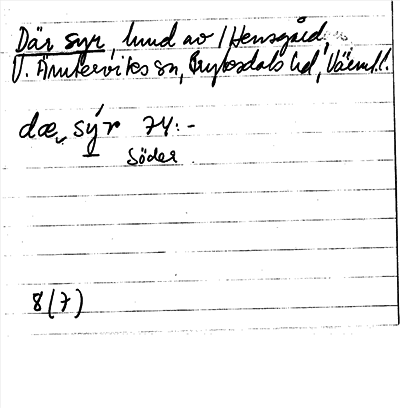 Där syr, lund av 1 Hensgård,
V. Ämterviks sn, Fryksdals hd, Värml.
dæ, sýr 74:-
söder
8(7)